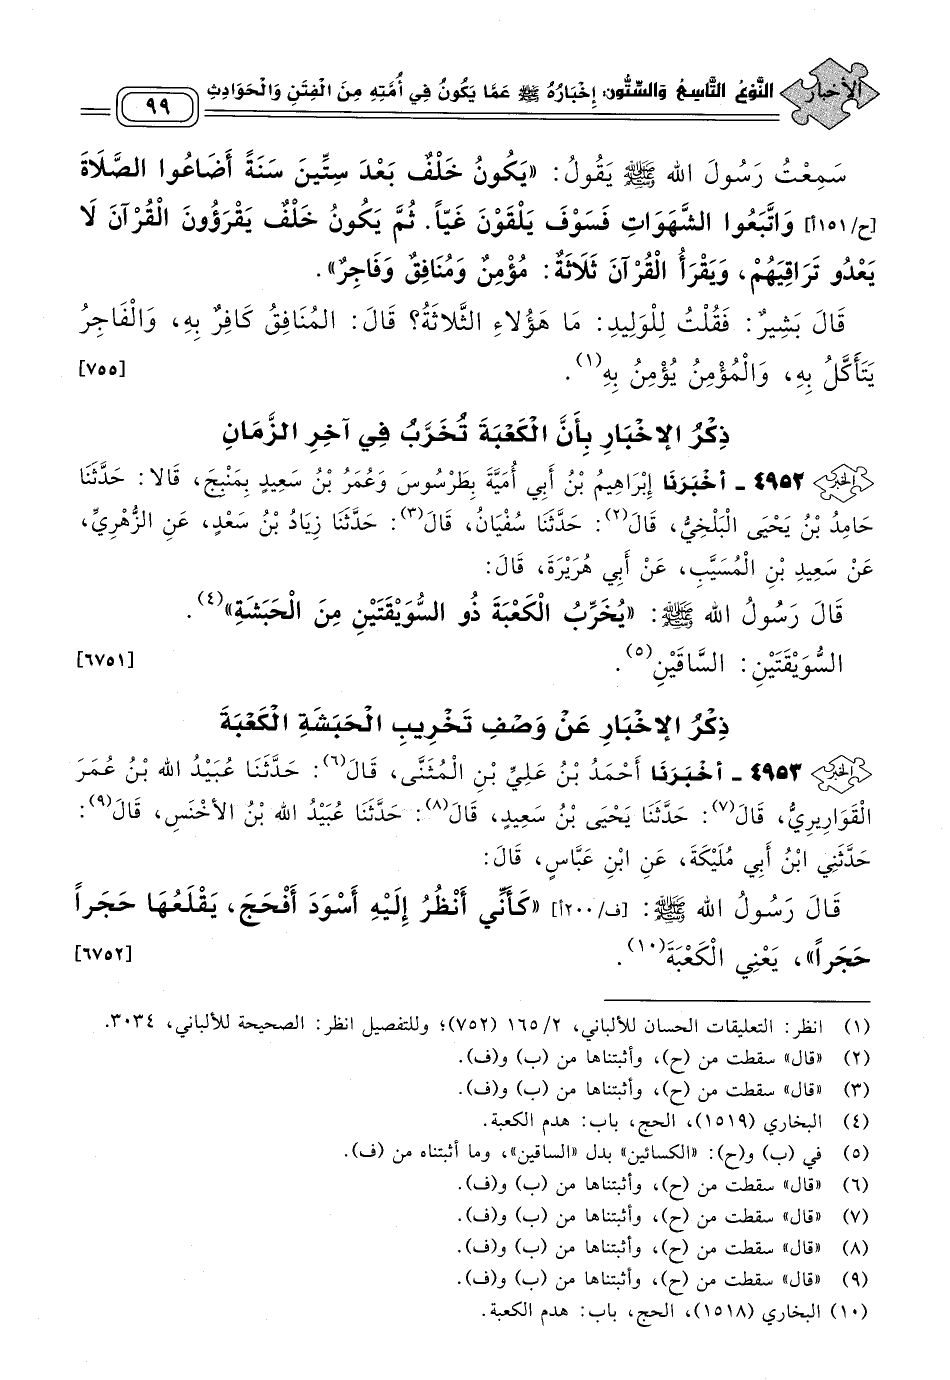 الأخبار
النَّوْعُ التَّاسِعُ وَالسِّتُّونَ: إِخْبَارُهُ ﷺ عَمَّا يَكُونُ فِي أُمَّتِهِ مِنَ الْفِتَنِ وَالْحَوَادِثِ
٩٩
سَمِعْتُ رَسُولَ الله ﷺ يَقُولُ: «يَكُونُ خَلْفٌ بَعْدَ سِتِّينَ سَنَةً أَضَاعُوا الصَّلَاةَ
[ح/١٥١أ] وَاتَّبَعُوا الشَّهَوَاتِ فَسَوْفَ يَلْقَوْنَ غَيّاً. ثُمَّ يَكُونُ خَلْفٌ يَقْرَؤُونَ الْقُرْآنَ لَا
يَعْدُو تَرَاقِيَهُمْ، وَيَقْرَأُ الْقُرْآنَ ثَلَاثَةٌ: مُؤْمِنٌ وَمُنَافِقٌ وَفَاجِرٌ».
قَالَ بَشِيرٌ: فَقُلْتُ لِلْوَلِيدِ: مَا هَؤُلَاءِ الثَّلَاثَةُ؟ قَالَ: المُنَافِقُ كَافِرٌ بِهِ، وَالْفَاجِرُ
يَتَأَكَّلُ بِهِ، وَالْمُؤْمِنُ يُؤْمِنُ بِهِ(١). [٧٥٥]
ذِكْرُ الإخْبَارِ بِأَنَّ الْكَعْبَةَ تُخَرَّبُ فِي آخِرِ الزَّمَانِ
الخبر ٤٩٥٢ - أخْبَرَنَا إِبْرَاهِيمُ بْنُ أَبِي أُمَيَّةَ بِطَرْسُوسَ وَعُمَرُ بْنُ سَعِيدٍ بِمَنْبِجَ، قَالا: حَدَّثَنَا
حَامِدُ بْنُ يَحْيَى الْبَلْخِيُّ، قَالَ(٢): حَدَّثَنَا سُفْيَانُ، قَالَ(٣): حَدَّثَنَا زِيَادُ بْنُ سَعْدٍ، عَنِ الزُّهْرِيِّ،
عَنْ سَعِيدِ بْنِ الْمُسَيَّبِ، عَنْ أَبِي هُرَيْرَةَ، قَالَ:
قَالَ رَسُولُ الله ﷺ: «يُخَرِّبُ الْكَعْبَةَ ذُو السُّوَيْقَتَيْنِ مِنَ الْحَبَشَةِ»(٤).
السُّوَيْقَتَيْنِ: السَّاقَيْنِ(٥). [٦٧٥١]
ذِكْرُ الإخْبَارِ عَنْ وَصْفِ تَخْرِيبِ الْحَبَشَةِ الْكَعْبَةَ
الخبر ٤٩٥٣ - أخْبَرَنَا أَحْمَدُ بْنُ عَلِيِّ بْنِ الْمُثَنَّى، قَالَ(٦): حَدَّثَنَا عُبَيْدُ الله بْنُ عُمَرَ
الْقَوَارِيرِيُّ، قَالَ(٧): حَدَّثَنَا يَحْيَى بْنُ سَعِيدٍ، قَالَ(٨): حَدَّثَنَا عُبَيْدُ الله بْنُ الأَخْنَسِ، قَالَ(٩):
حَدَّثَنِي ابْنُ أَبِي مُلَيْكَةَ، عَنِ ابْنِ عَبَّاسٍ، قَالَ:
قَالَ رَسُولُ الله ﷺ: [ف/٢٠٠أ] «كَأَنِّي أَنْظُرُ إِلَيْهِ أَسْوَدَ أَفْحَجَ، يَقْلَعُهَا حَجَراً
حَجَراً»، يَعْنِي الْكَعْبَةَ(١٠). [٦٧٥٢]
(١) انظر: التعليقات الحسان للألباني، ٢/ ١٦٥ (٧٥٢)؛ وللتفصيل انظر: الصحيحة للألباني، ٣٠٣٤.
(٢) «قال» سقطت من (ح)، وأثبتناها من (ب) و(ف).
(٣) «قال» سقطت من (ح)، وأثبتناها من (ب) و(ف).
(٤) البخاري (١٥١٩)، الحج، باب: هدم الكعبة.
(٥) في (ب) و(ح): «الكسائين» بدل «الساقين»، وما أثبتناه من (ف).
(٦) «قال» سقطت من (ح)، وأثبتناها من (ب) و(ف).
(٧) «قال» سقطت من (ح)، وأثبتناها من (ب) و(ف).
(٨) «قال» سقطت من (ح)، وأثبتناها من (ب) و(ف).
(٩) «قال» سقطت من (ح)، وأثبتناها من (ب) و(ف).
(١٠) البخاري (١٥١٨)، الحج، باب: هدم الكعبة.